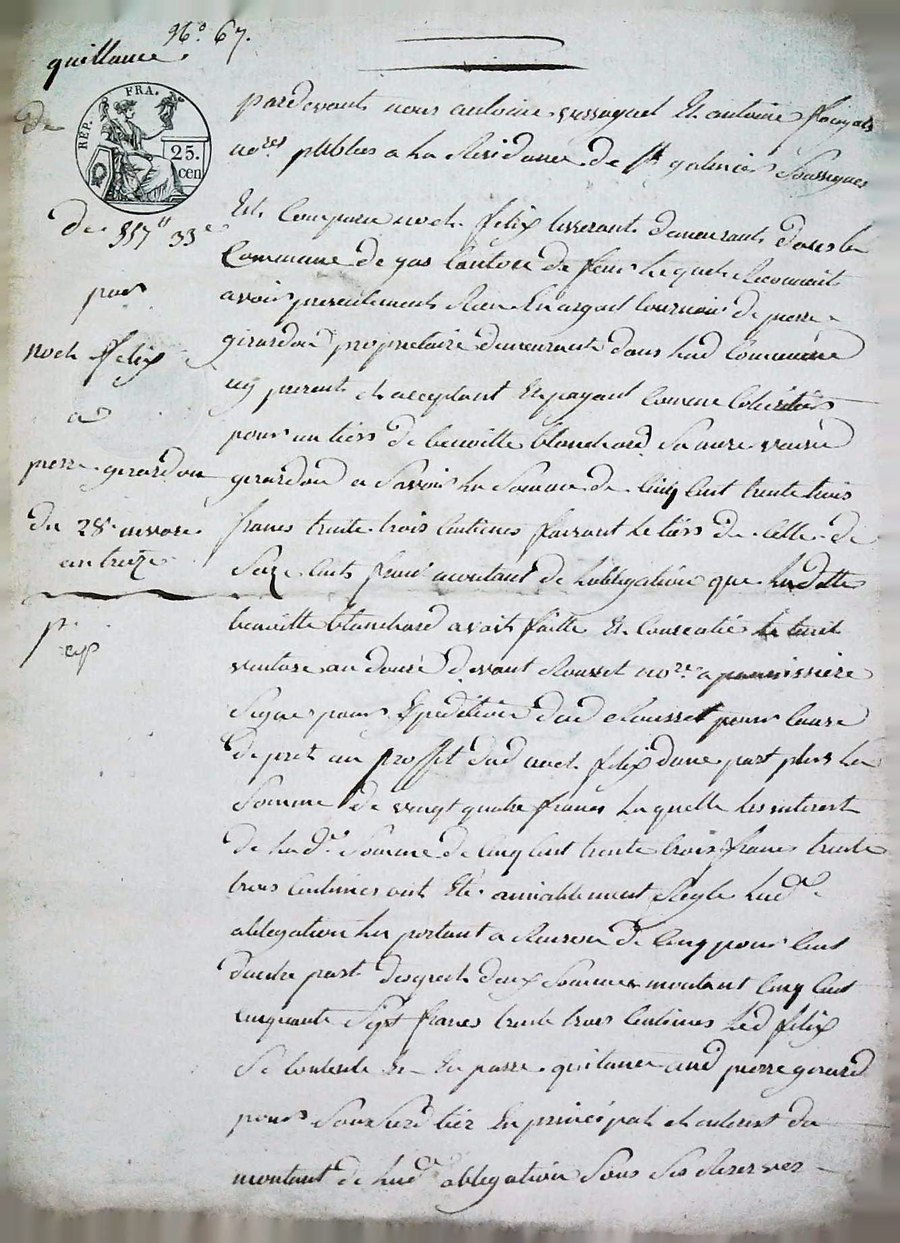 N.° 67.
quillance
de
REP. FRA.
25. cen
De 557" 33 c
pour
noel felix
a
pierre girardon
du 28 e nivose
an treize
p.r
exp
pardevant nous antoine et antoine
no.res publics a la Residence de S.t galmier Soussignes
Est Comparu noel felix tisserant demeurant dans la
Commune de gas Canton de feur Lequel Reconnoit
avoir presentement Reçu En argent de pierre
girardon proprietaire demeurant dans lad Commune
icy present et acceptant En payant Comme
pour un tiers de benoitte blanchard Sa mere veuve
girardon a Savoir La Somme de Cinq Cent trente trois
francs trente trois Centimes faisant le tiers de Celle de
Seize Cents franc montant de Lobligation que Ladette
benoitte blanchard avoit faitte Et Consentie le huit
ventose an douze devant Rousset no.re a
Signe pour Expedition dud Rousset pour Cause
de pret au proffit dud noel felix dune part plus La
Somme de vingt quatre francs Laquelle les interest
de Lad.e Somme de Cinq Cent trente trois francs trente
trois Centimes ont Eté amiablement Regle Lad.e
obligation Les portant a Raison de Cinq pour Cent
dautre part desquels deux Sommes montant Cinq Cent
Cinquante Sept francs trente trois Centimes Led felix
Se Contente Et En passe quitance aud pierre girard
pour Sursurd tiers En principal et interest du
montant de Lad.e obligation Sous Ses Reserves